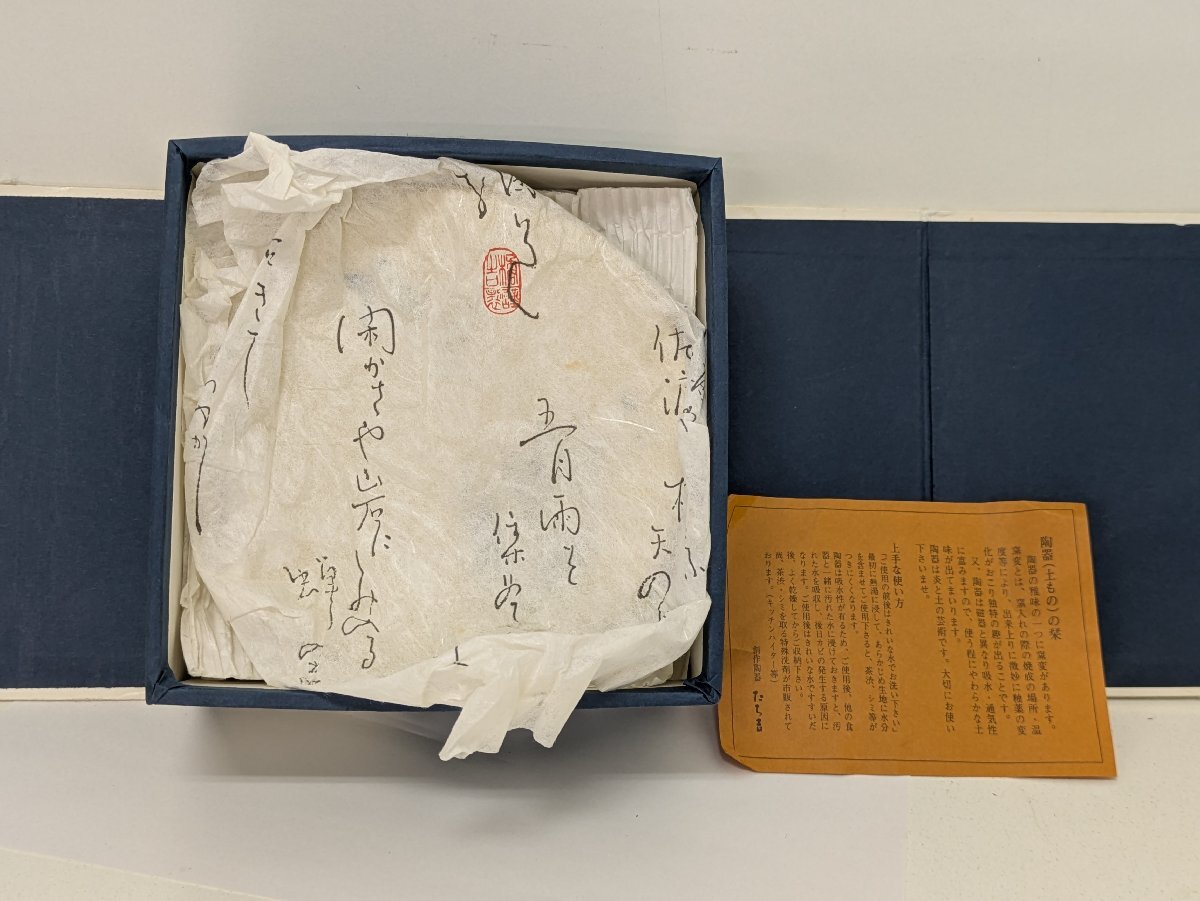 佐渡や
天の
五月雨を
集めて
閑かさや岩に
しみ入る
蝉
陶器(土もの)の栞
陶器の雅味の一つに窯変があります。
窯変とは、窯入れの際の焼成の場所・温
度等により、出来上りに微妙に釉薬の変
化がおこり独特の趣が出ることです。
又、陶器は磁器と異なり吸水・通気性
に富みますので、使う程にやわらかな土
味が出てまいります。
陶器は炎と土の芸術です。大切にお使い
下さいませ。
上手な使い方
「ご使用の前後はきれいな水でお洗い下さい」
最初に熱湯に浸して、あらかじめ生地に水分
を含ませてご使用下さると、茶渋、シミ等が
つきにくくなります。
陶器は吸水性が有るため、ご使用後、他の食
器と一緒に汚れた水に浸けておきますと、汚
れた水を吸収し、後日カビの発生する原因に
成ります。ご使用後はきれいな水ですすいだ
後、よく乾燥してからご収納下さい。
尚、茶渋・シミを取る特殊洗剤が市販されて
おります。(キッチンハイター等)
創作陶器 たち吉